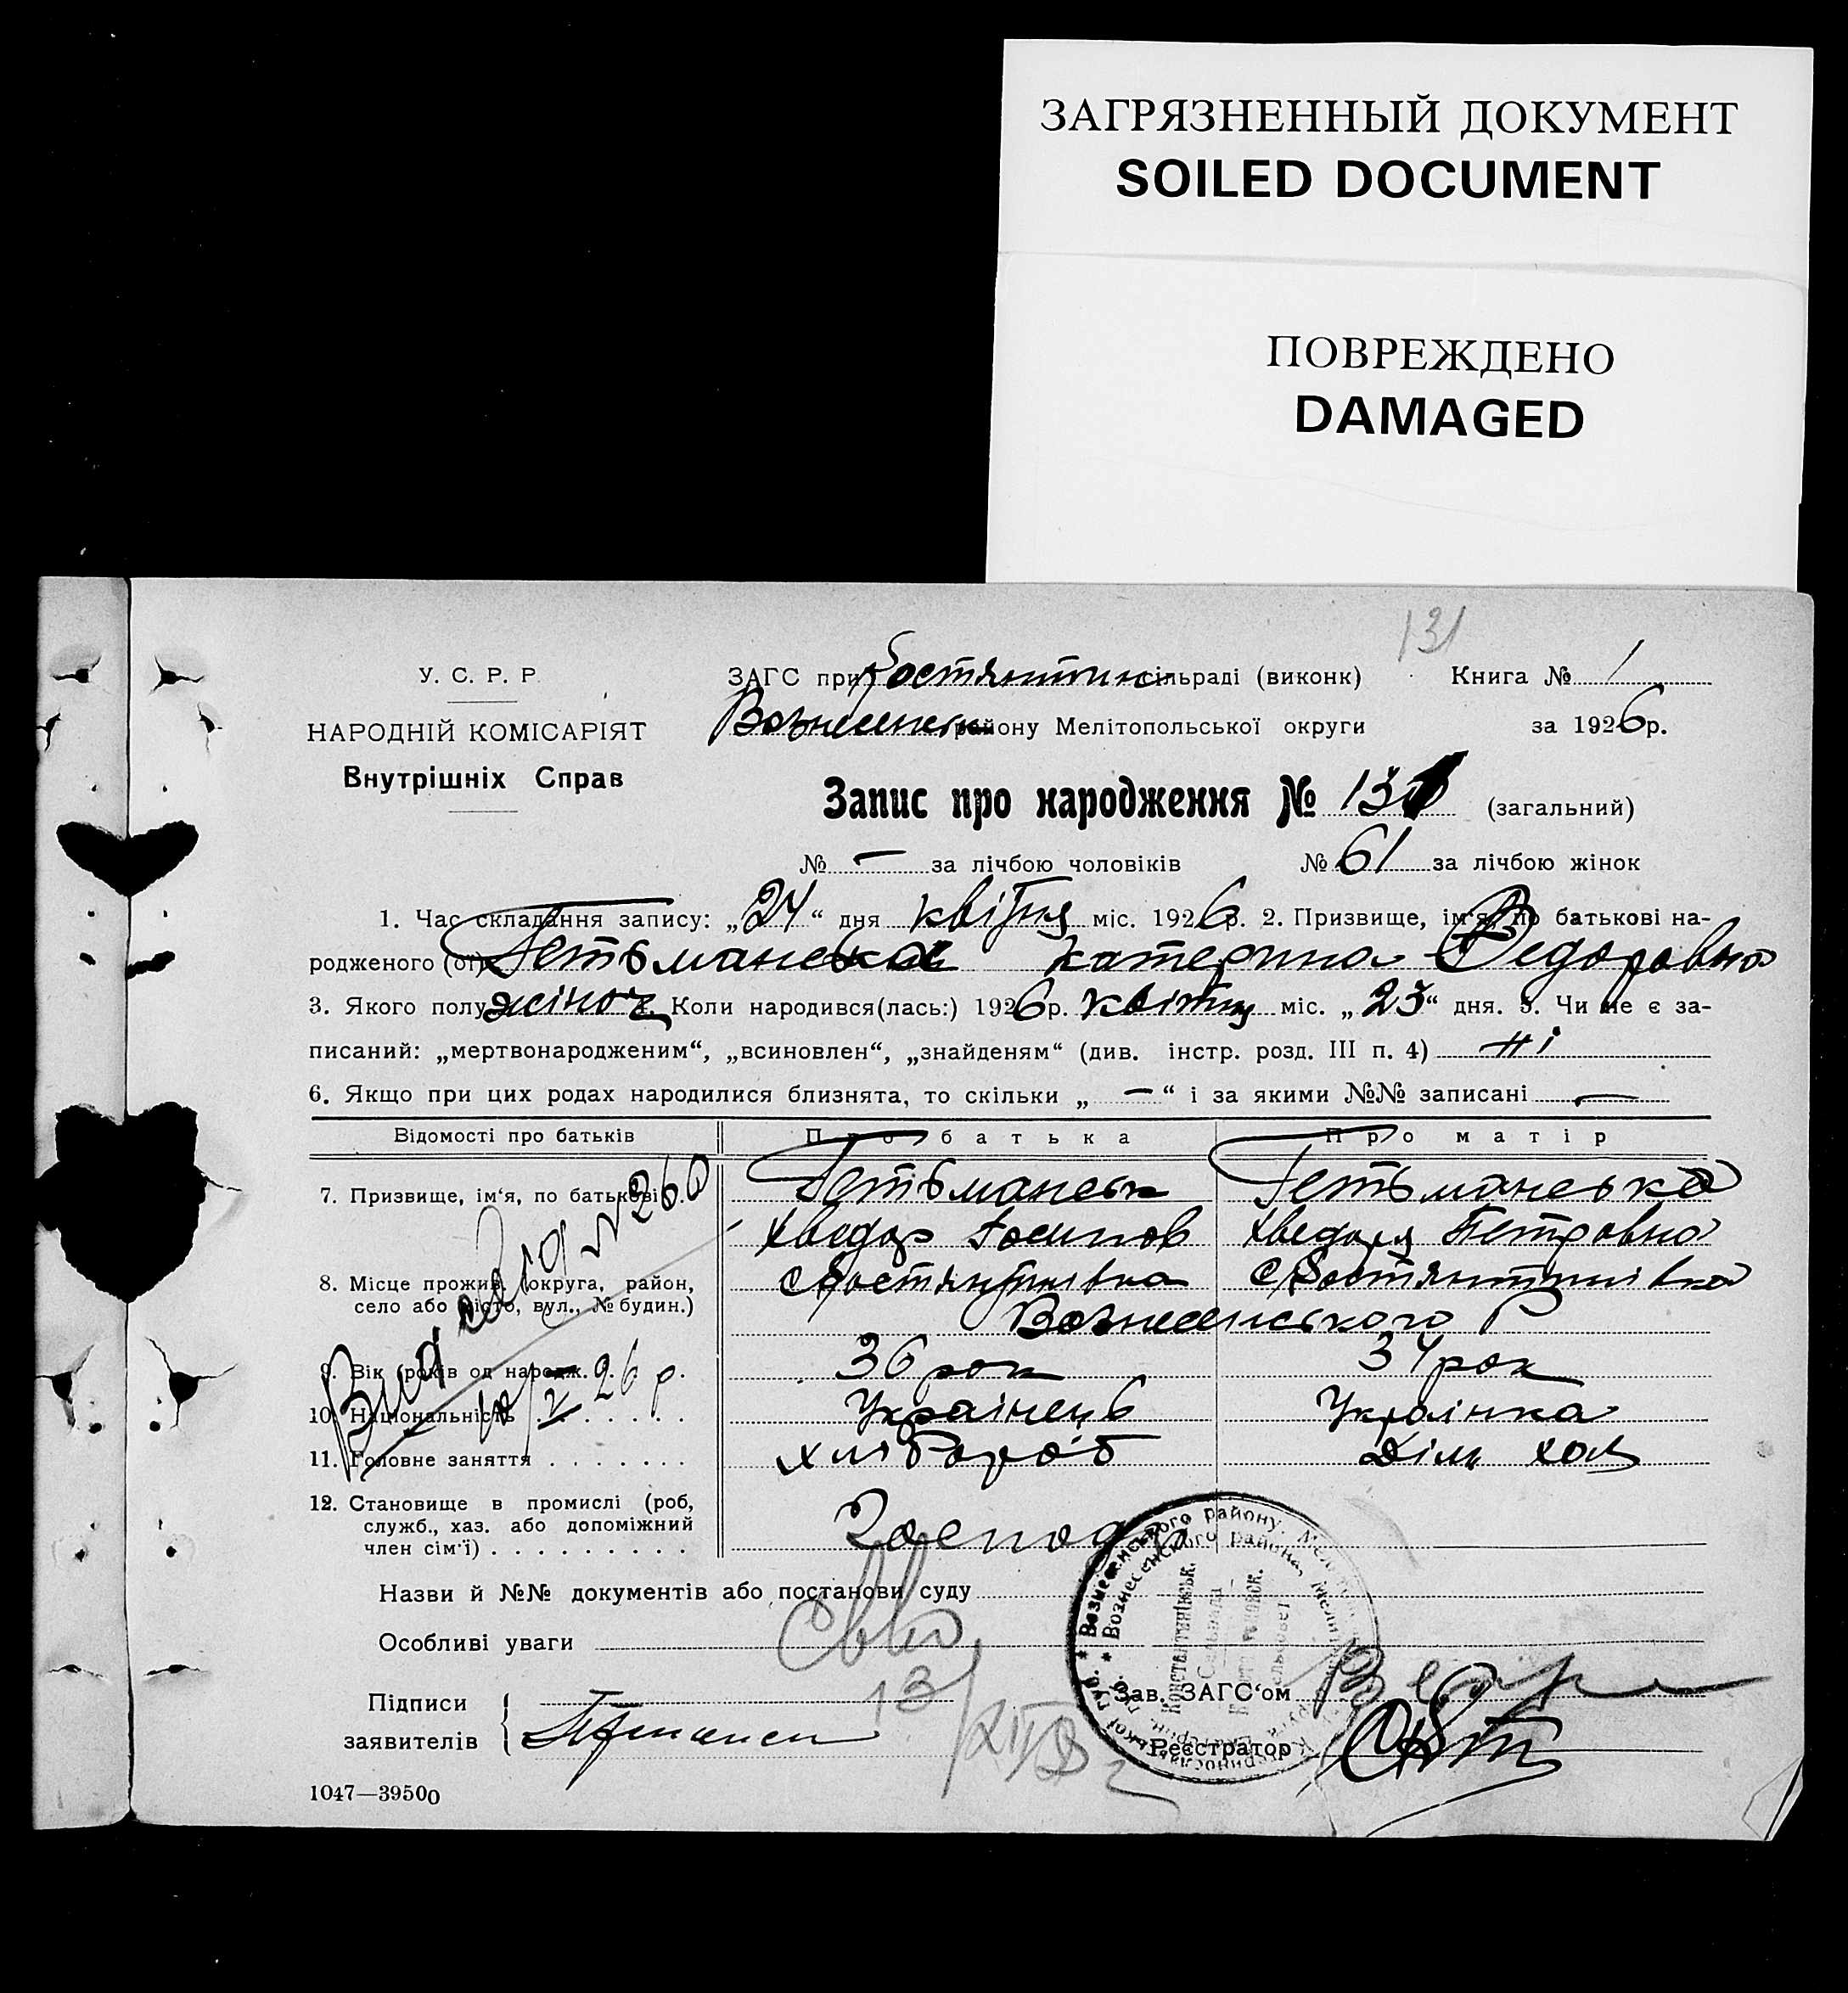 ЗАГРЯЗНЕННЫЙ ДОКУМЕНТ
SOILED DOCUMENT
ПОВРЕЖДЕНО
DAMAGED
131
У. С. Р. Р.
НАРОДНІЙ КОМІСАРІЯТ
Внутрішніх Справ
ЗАГС при Костянтин сільраді (виконк) Книга № 1
Вознесенськ району Мелітопольської округи за 1926 р.
Запис про народження № 131 (загальний)
№ — за лічбою чоловіків № 61 за лічбою жінок
1. Час складання запису: „24“ дня квітня міс. 1926 р. 2. Призвище, ім‘я, по батькові на-
родженого (ої) Гетьманська Катерина Федоровна
3. Якого полу жіноч 4. Коли народився(лась:) 1926 р. квітня міс. „23“ дня. 5. Чи не є за-
писаний: „мертвонародженим“, „всиновлен“, „знайденям“ (див. інстр. розд. III п. 4) ні
6. Якщо при цих родах народилися близнята, то скільки „ — “ і за якими №№ записані —
Відомості про батьків Про батька Про матір
7. Призвище, ім‘я, по батькові Гетьманськ Гетьманська
Хведор Йосипов Хведора Петровна
8. Місце прожив. (округа, район, с Костянтинівка с Костянтинівка
село або місто, вул., № будин.) Вознесенського Р
9. Вік (років од народж. 36 рок 34 рок
10. Національність Українець Українка
11. Головне заняття хлібороб Діял хоз
12. Становище в промислі (роб,
служб., хаз. або допоміжний
член сім‘ї) Господар
260
26 р.
Назви й №№ документів або постанови суду
Особливі уваги
13/XII
Підписи
заявителів
Зав. ЗАГС‘ом
Реєстратор
1047—39500